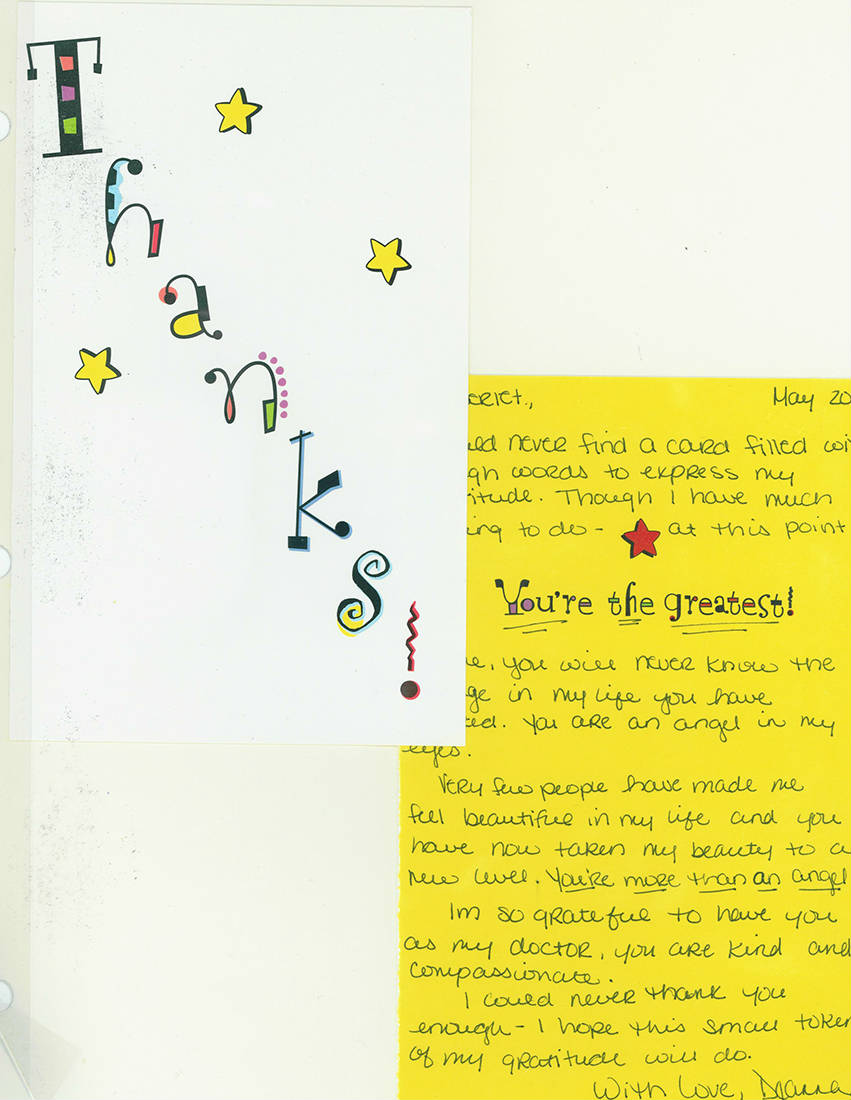 Thanks!
May 20
never find a card filled
words to express my
Though I have much
to do - at this point
You're the greatest!
you will never know the
in my life you have
You are an angel in my
eyes.
Very few people have made me
feel beautiful in my life and you
have now taken my beauty to a
new level. You're more than an angel
Im so grateful to have you
as my doctor, you are kind and
compassionate.
I could never thank you
enough - I hope this small token
of my gratitude will do.
With Love,